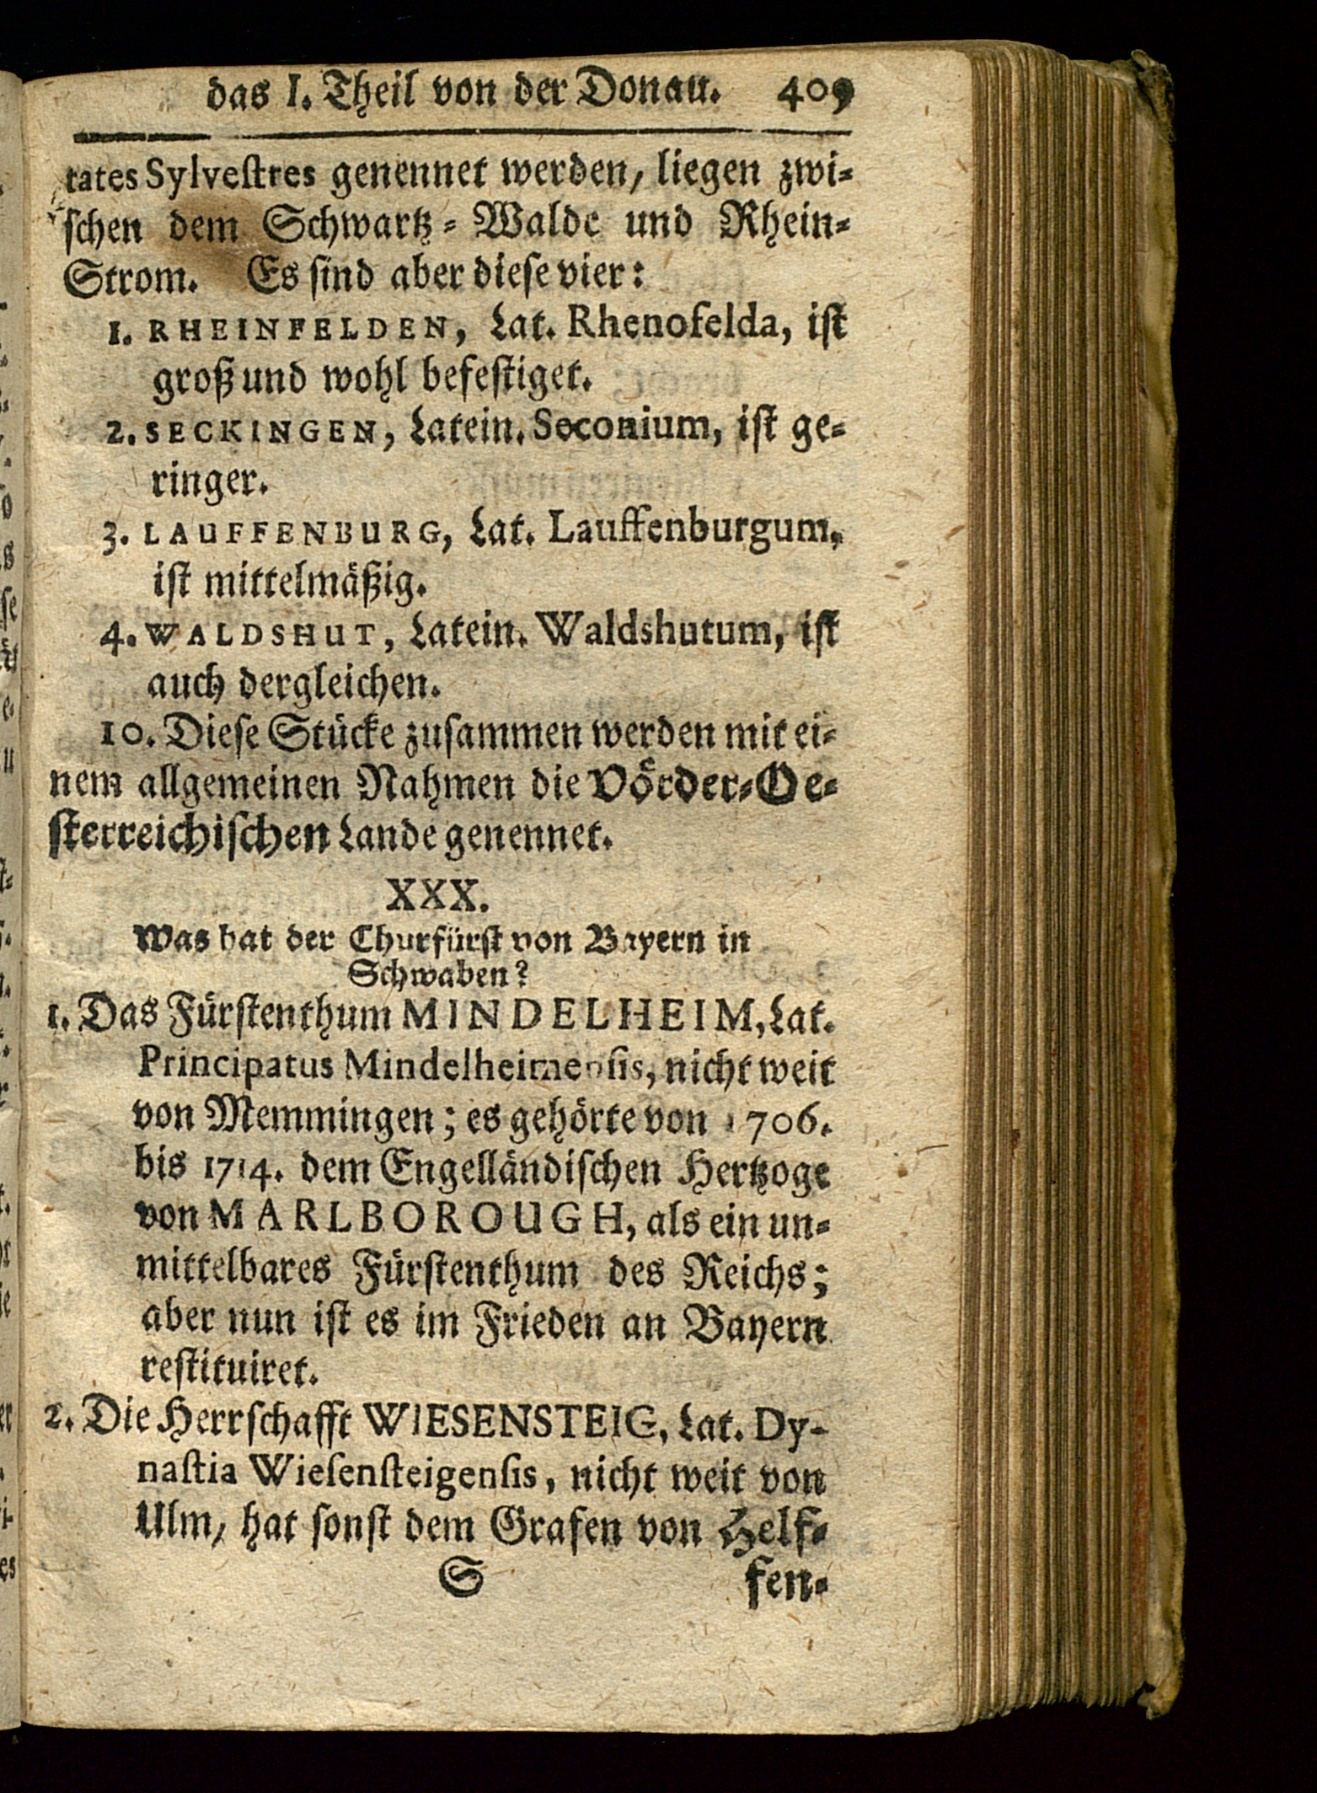 das I. Theil von der Donau. 409
tates Sylvestres genennet werden, liegen zwi-
schen dem Schwartz-Walde und Rhein-
Strom. Es sind aber diese vier:
1. RHEINFELDEN, Lat. Rhenofelda, ist
groß und wohl befestiget.
2. SECKINGEN, Latein. Seconium, ist ge-
ringer.
3. LAUFFENBURG, Lat. Lauffenburgum,
ist mittelmäßig.
4. WALDSHUT, Latein. Waldshutum, ist
auch dergleichen.
10. Diese Stücke zusammen werden mit ei-
nem allgemeinen Nahmen die Vörder-Oe-
sterreichischen Lande genennet.
XXX.
Was hat der Churfürst von Bayern in
Schwaben?
1. Das Fürstenthum MINDELHEIM, Lat.
Principatus Mindelheimensis, nicht weit
von Memmingen; es gehörte von 1706.
bis 1714. dem Engelländischen Hertzoge
von MARLBOROUGH, als ein un-
mittelbares Fürstenthum des Reichs;
aber nun ist es im Frieden an Bayern
restituiret.
2. Die Herrschafft WIESENSTEIG, Lat. Dy-
nastia Wiesensteigensis, nicht weit von
Ulm, hat sonst dem Grafen von Helf-
S fen-